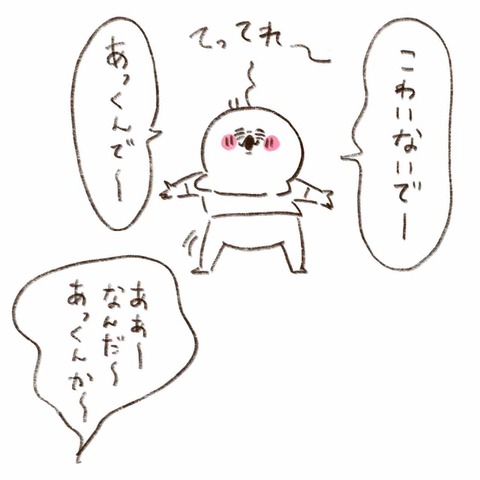 てってれ〜
こわいないでー
あっくんで〜
ああー
なんだ〜
あっくんか〜